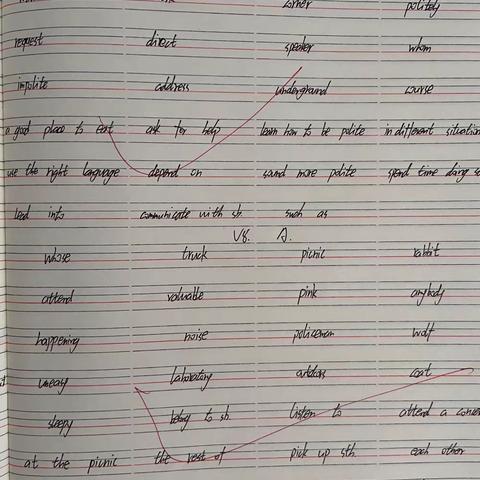 corner politely
request direct speaker whom
impolite address underground course
a good place to eat ask for help learn how to be polite in different situation
use the right language depend on sound more polite spend time doing
lead into communicate with sb. such as
V8. A.
whose truck picnic rabbit
attend valuable pink anybody
happening noise policeman wolf
uneasy laboratory coat
sleepy belong to sb. listen to attend a
at the picnic the rest of pick up sth. each other